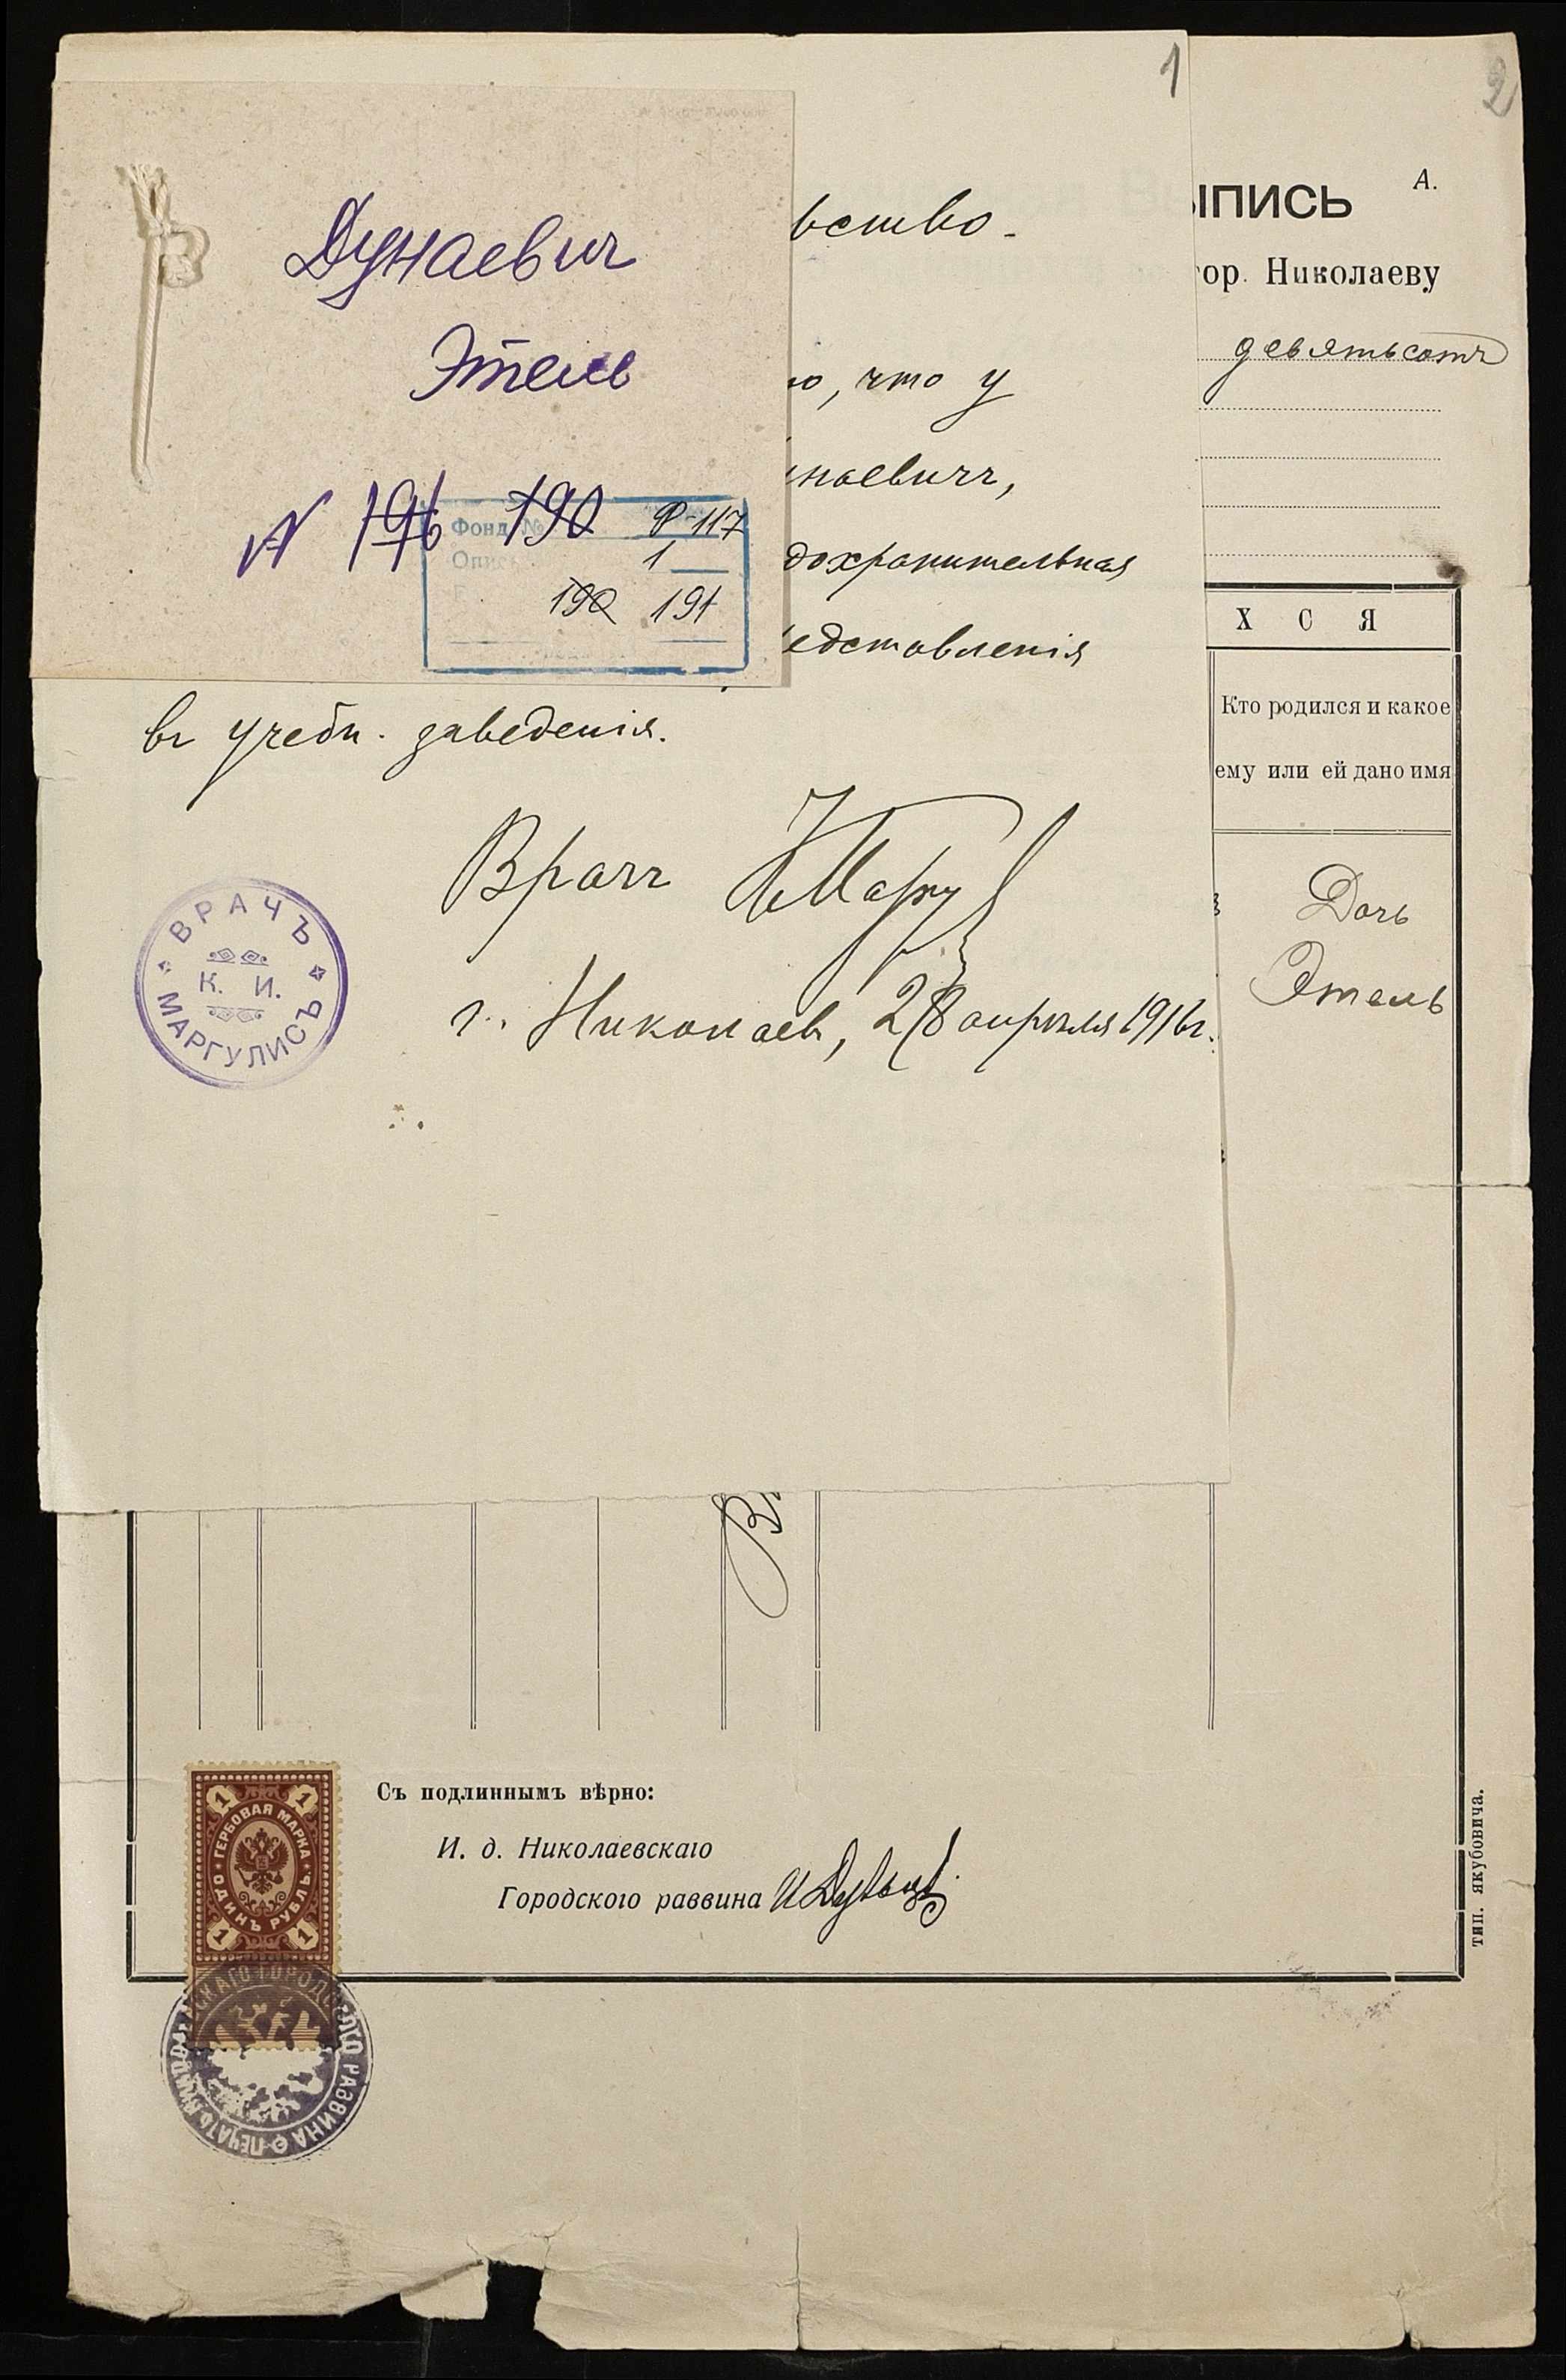 Дунаевич
Этель
N 196 190
Фонд № Р-117
Опис 1
190 191
1
ьство.
ю, что у
наевичъ,
дохранительная
едставленія
въ учебн. заведенія.
Врачъ КМаргу
г. Николаевъ, 28 апрѣля 1916 г.
ВРАЧЪ
К. И.
МАРГУЛИСЪ
2
А.
ПИСЬ
ор. Николаеву
девятьсотъ
Х С Я
Кто родился и какое
ему или ей дано имя
Дочь
Этель
Съ подлиннымъ вѣрно:
И. д. Николаевскаго
Городского раввина
тип. якубовича.
1 1
ГЕРБОВАЯ МАРКА
ОДИНЪ РУБЛЬ
1 1
СКАГО ГОРОДСКОГО РАВВИНА ПЕЧАТЬ